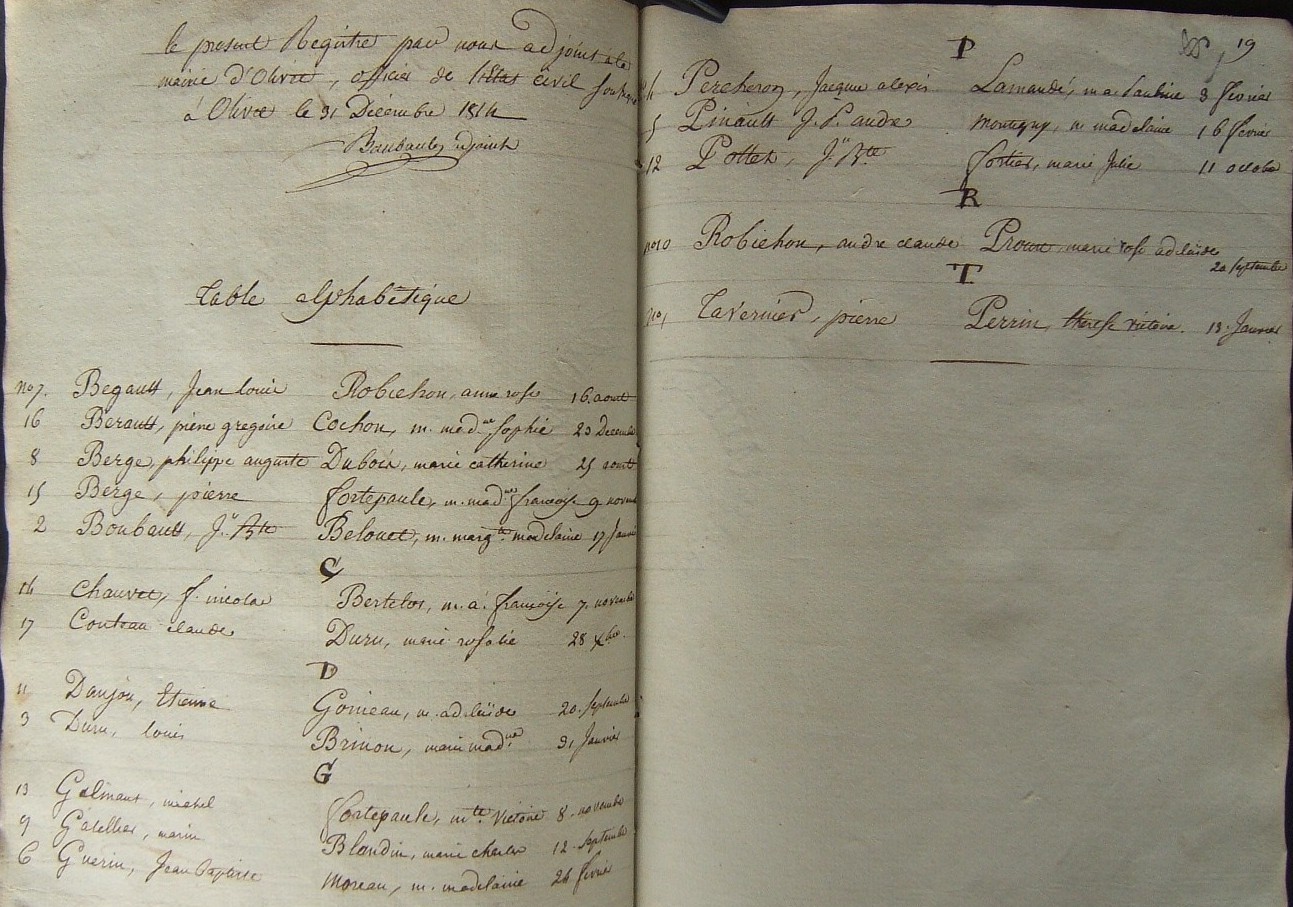 le present Registre par nous adjoint à la
mairie d'Olivet, officier de l'Etat civil
à Olivet le 31 Décembre 1814
Boubault adjoint
Table alphabétique
no 7. Begault, Jean louis Robichon, anne rose 16. aout
16 Berault, pierre gregoire Cochon, m. mad.ne sophie 23 Decembre
8 Berge, philippe auguste Dubois, marie catherine 25 aout
15 Berge, pierre fortepaule, m. mad.ne françoise 9 novem
2 Boubault, J.n Bte Belouet, m. marg.te madelaine 17 Janvi
C
14 Chauvet, f. nicolas Bertelos, m. a. françoise 7. novembre
17 Couteau claude Duru, marie rosalie 28 xbre.
D
11 Danjou, Etienne Goineau, m. adelaïde 20. septembre
3 Duru, louis Brinon, marie mad.ne 31 Janvier
G
13 Galmant, michel fortepaule, m.te Victoire 8. novembre
9 Gatellier, marin Blondin, marie charles 12. septembre
6 Guerin, Jean baptiste Moreau, m. madelaine 24 février
19
P
4 Percheron, Jacques alexis Lamandé, m. a. Pauline 3 février
5 Pinault J. P. andre Montigny, m. madelaine 16 fevrier
12 Pottet, J.n Bte. fortier, marie Julie 11 octobre
R
no 10 Robichon, andre claude Proust, marie rose adelaïde
20 septembre
T
no 1 Tavernier, pierre Perrin, therese victoire. 13. Janvier